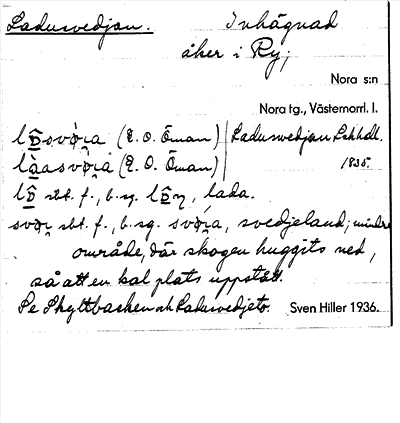 Ladusvedjan. Inhägnad
åker i Ry;
Nora s:n
Nora tg., Västernorrl. l.
(E. O. Öman) Ladusvedjan Lskhdl.
(E. O. Öman) 1835.
sbt. f., b. sg. lada.
sbt. f., b. sg. svedjeland; mindre
område, där skogen huggits ned,
så att en kal plats uppstått.
Se Skyttbacken och Ladusvedjeto. Sven Hiller 1936.